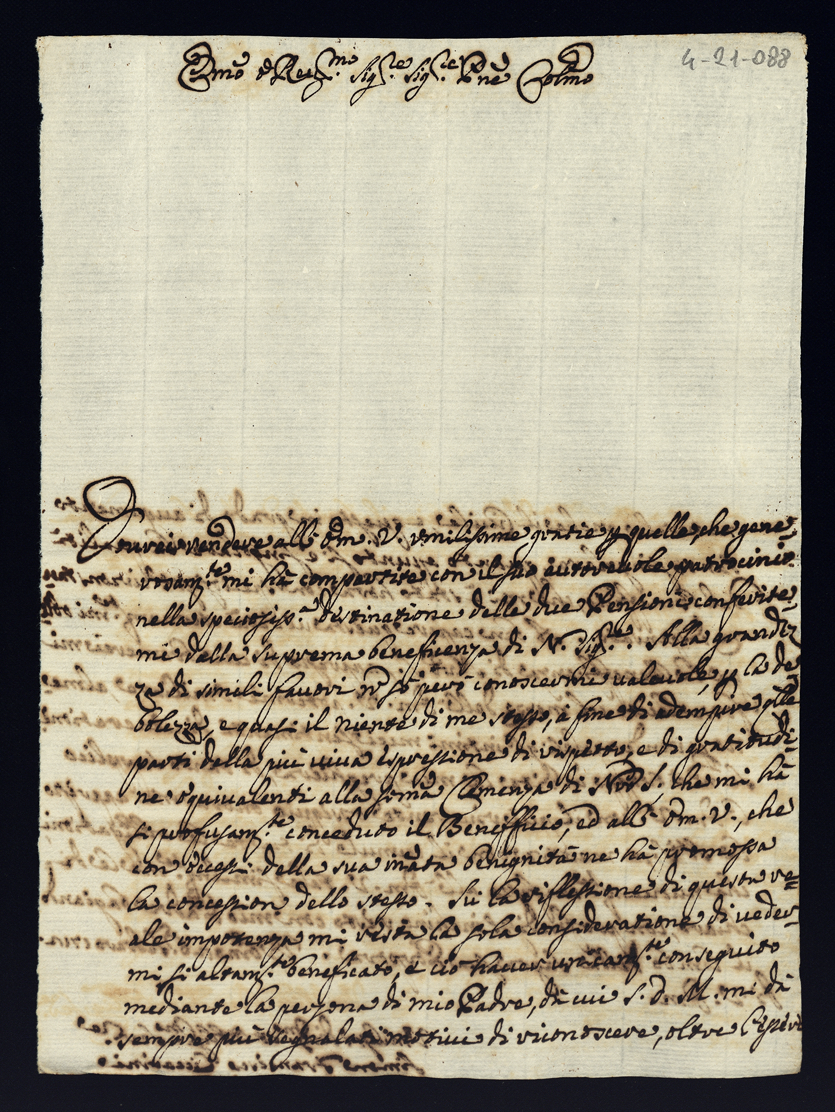 4-21-088
Emo e Reumo Sigre Sigre Pne Colmo
Dourei rendere all' Em. V. umilissime gratie p quelle, che gene-
rosamte mi hà compartite con il suo autoreuole patrocinio
nella speciosissa destinatione delle due Pensioni conferite-
mi dalla suprema beneficenza di N. Sigre. Alla grandez-
za di simili fauori nō sò però conoscermi ualeuole, p la de-
bolezza, e quasi il niente di me stesso, à fine di adempire qlle
parti della più uiua espressione di rispetto, e di gratitudi-
ne equivalenti alla somā Clemenza di Nro S. che mi hà
si profusamte conceduto il Benefficio, ed all' Em. V., che
con eccessi della sua innata benignità ne hà promossa
la concession dello stesso. Sù la riflessione di questa re-
ale impotenza mi resta la sola consideratione di ueder-
mi si altamte beneficato, e ciò hauer unicamte conseguito
mediante la persona di mio Padre, dà cui S. D. M. mi dà
sempre più segnalati motiui di riconoscere, oltre l'essere